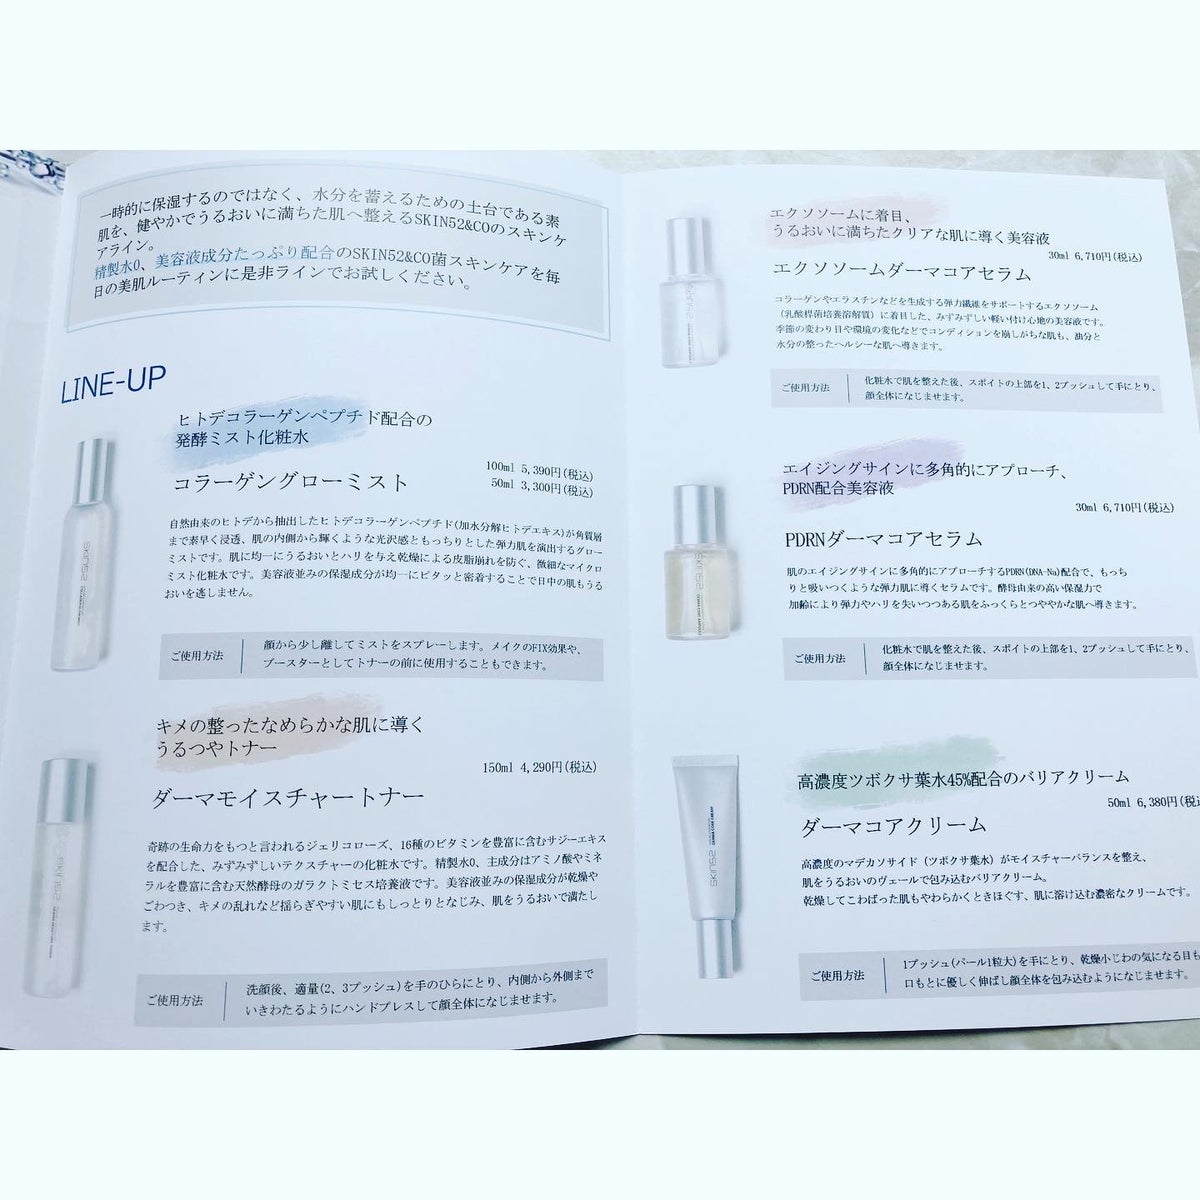 一時的に保湿するのではなく、水分を蓄えるための土台である素
肌を、健やかでうるおいに満ちた肌へ整えるSKIN52&COのスキンケ
アライン。
精製水0、美容液成分たっぷり配合のSKIN52&CO菌スキンケアを毎
日の美肌ルーティンに是非ラインでお試しください。
LINE-UP
ヒトデコラーゲンペプチド配合の
発酵ミスト化粧水
100ml 5,390円(税込)
50ml 3,300円(税込)
コラーゲングローミスト
自然由来のヒトデから抽出したヒトデコラーゲンペプチド(加水分解ヒトデエキス)が角質層
まで素早く浸透、肌の内側から輝くような光沢感ともっちりとした弾力肌を演出するグロー
ミストです。肌に均一にうるおいとハリを与え乾燥による皮脂崩れを防ぐ、微細なマイクロ
ミスト化粧水です。美容液並みの保湿成分が均一にピタッと密着することで日中の肌もうる
おいを逃しません。
ご使用方法
顔から少し離してミストをスプレーします。メイクのFIX効果や、
ブースターとしてトナーの前に使用することもできます。
キメの整ったなめらかな肌に導く
うるつやトナー
150ml 4,290円(税込)
ダーマモイスチャートナー
奇跡の生命力をもつと言われるジェリコローズ、16種のビタミンを豊富に含むサジーエキス
を配合した、みずみずしいテクスチャーの化粧水です。精製水0、主成分はアミノ酸やミネ
ラルを豊富に含む天然酵母のガラクトミセス培養液です。美容液並みの保湿成分が乾燥や
ごわつき、キメの乱れなど揺らぎやすい肌にもしっとりとなじみ、肌をうるおいで満たし
ます。
ご使用方法
洗顔後、適量(2、3プッシュ)を手のひらにとり、内側から外側まで
いきわたるようにハンドプレスして顔全体になじませます。
エクソソームに着目、
うるおいに満ちたクリアな肌に導く美容液
30ml 6,710円(税込)
エクソソームダーマコアセラム
コラーゲンやエラスチンなどを生成する弾力繊維をサポートするエクソソーム
（乳酸桿菌培養溶解質）に着目した、みずみずしい軽い付け心地の美容液です。
季節の変わり目や環境の変化などでコンディションを崩しがちな肌も、油分と
水分の整ったヘルシーな肌へ導きます。
ご使用方法
化粧水で肌を整えた後、スポイトの上部を1、2プッシュして手にとり、
顔全体になじませます。
エイジングサインに多角的にアプローチ、
PDRN配合美容液
30ml 6,710円(税込)
PDRNダーマコアセラム
肌のエイジングサインに多角的にアプローチするPDRN(DNA-Na)配合で、もっち
りと吸いつくような弾力肌に導くセラムです。酵母由来の高い保湿力で
加齢により弾力やハリを失いつつある肌をふっくらとつややかな肌へ導きます。
ご使用方法
化粧水で肌を整えた後、スポイトの上部を1、2プッシュして手にとり、
顔全体になじませます。
高濃度ツボクサ葉水45%配合のバリアクリーム
50ml 6,380円(税込
ダーマコアクリーム
高濃度のマデカソサイド（ツボクサ葉水）がモイスチャーバランスを整え、
肌をうるおいのヴェールで包み込むバリアクリーム。
乾燥してこわばった肌もやわらかくときほぐす、肌に溶け込む濃密なクリームです。
ご使用方法
1プッシュ(パール1粒大)を手にとり、乾燥小じわの気になる目も
口もとに優しく伸ばし顔全体を包み込むようになじませます。
SKIN52
SKIN52
SKIN52
SKIN52
SKIN52
DERMA CORE CREAM